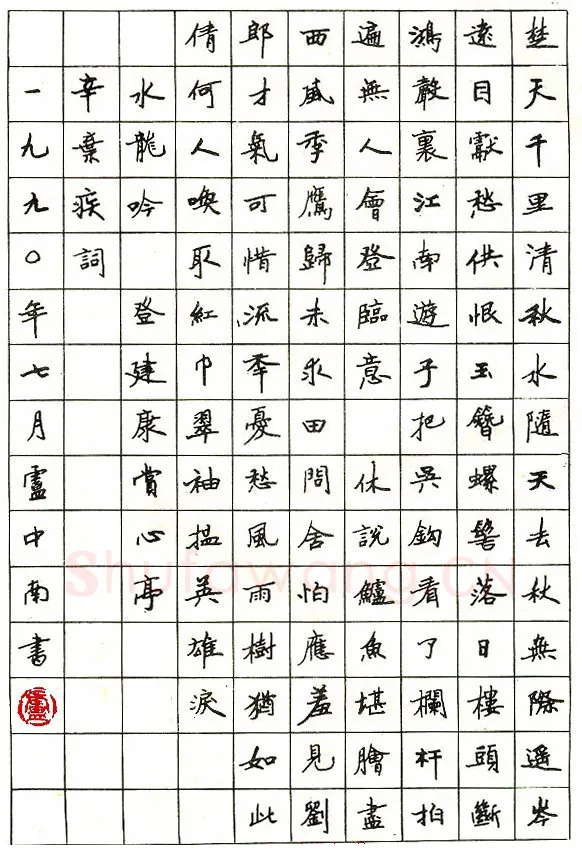 楚天千里清秋水隨天去秋無際遥岑
遠目獻愁供恨玉簪螺髻落日樓頭斷
鴻聲裏江南遊子把吳鉤看了欄杆拍
遍無人會登臨意 休說鱸魚堪膾盡
西風季鷹歸未求田問舍怕應羞見劉
郎才氣可惜流年憂愁風雨樹猶如此
倩何人喚取紅巾翠袖搵英雄淚
水龍吟 登建康賞心亭
辛棄疾詞
一九九〇年七月盧中南書
Shufawang.CN